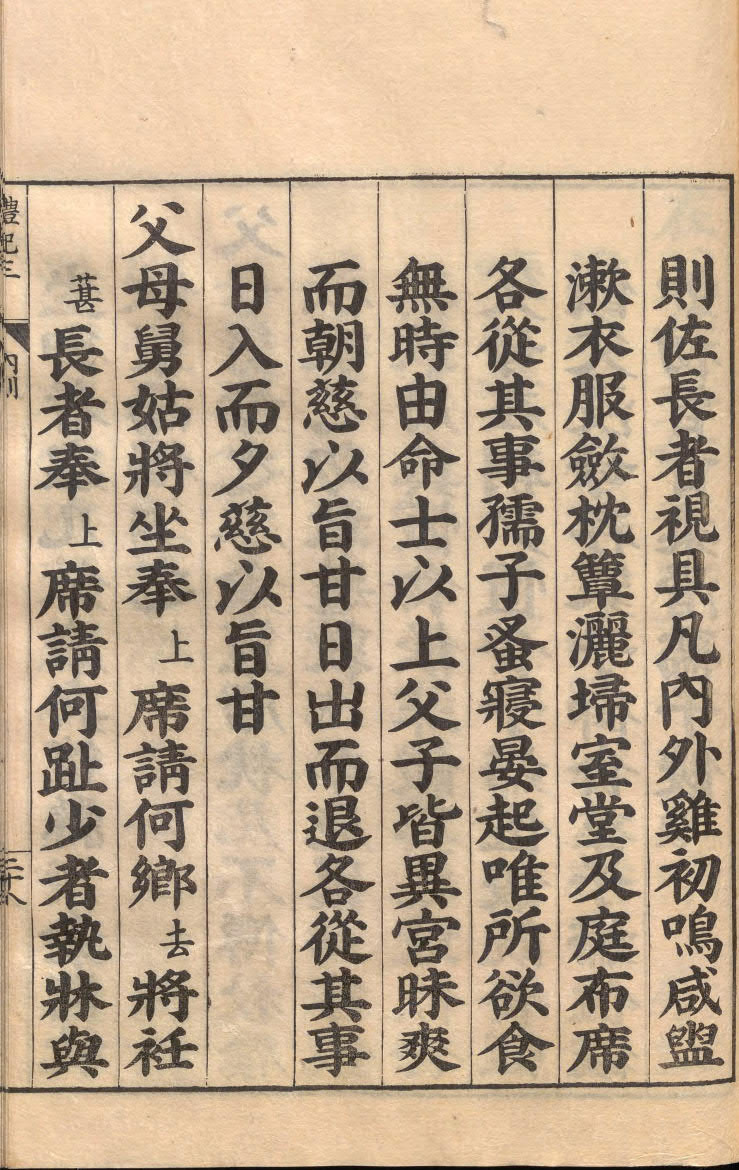 則佐長者視具凡內外雞初鳴咸盥
漱衣服斂枕簟灑埽室堂及庭布席
各從其事孺子蚤寢晏起唯所欲食
無時由命士以上父子皆異宮昧爽
而朝慈以旨甘日出而退各從其事
日入而夕慈以旨甘
父母舅姑將坐奉上席請何鄉去將衽
葚長者奉上席請何趾少者執牀與
禮記三
內則
二十八